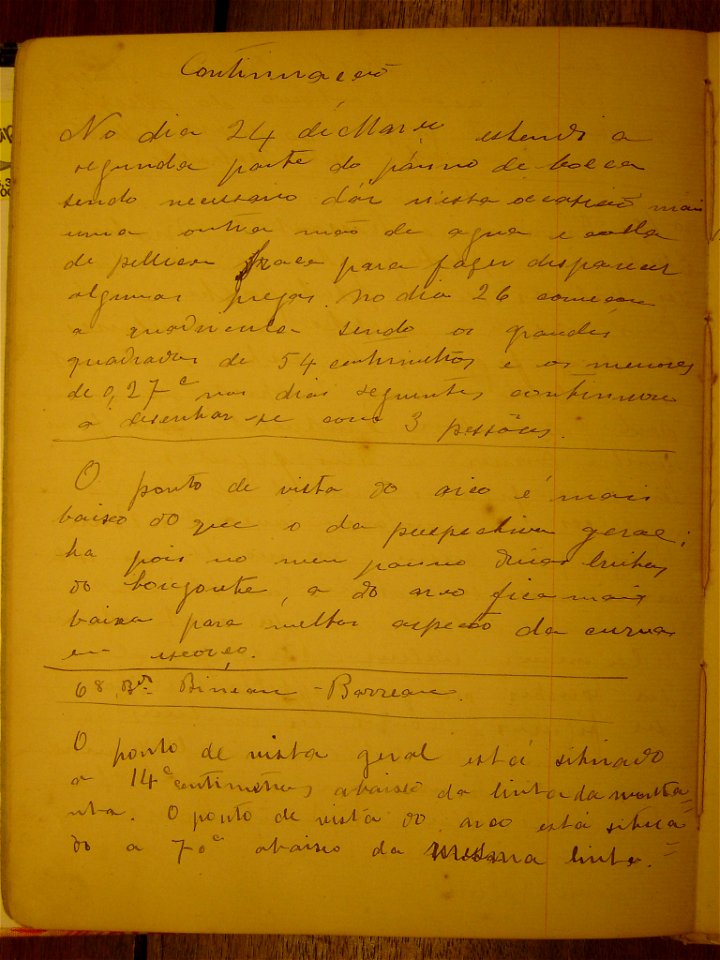 Continuação
No dia 24 de Março estendi a
segunda parte do pânno de bocca
sendo necessario dár nesta occasião mais
uma outra mão de agua e colla
de pellica fraca para fazer disparecer
algumas prégas. No dia 26 começou
a quadricula sendo os grandes
quadrados de 54 centimetros e os menores
de 0,27 c nos dias seguintes continuou
a desenhar-se com 3 pessôas.
O ponto de vista do arco é mais
baixo do que o da perspectiva geral;
ha pois no meu panno duas linhas
do horizonte, a do arco fica mais
baixa para melhor aspecto da curva
em escorço.
68, Bineau - Barreau
O ponto de vista geral está situado
a 14 c centimetros abaixo da linha da
O ponto de vista do arco está situa
do a 70 c abaixo da mesma linha.=